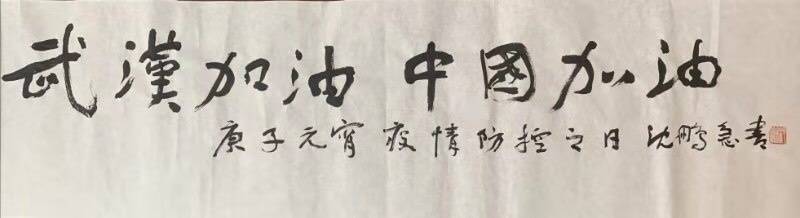 武漢加油 中國加油
庚子元宵疫情防控之日沈鹏急书